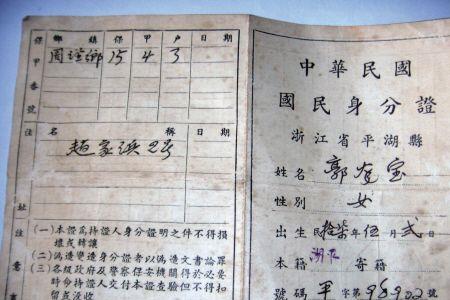 鄉鎮 保 甲 户 日期
周墐鄉 15 4 3
保甲番號
註
名稱 日期
趙家浜
址
註
意
(一)本證爲持證人身分證明之件不得損
壞或轉讓
(二)偽造變造身分證者以偽造文書論罪
(三)各級政府及警察保安機關得於必要
時令持證人交付本證查驗但不得扣
留或沒收
中華民國
國民身分證
浙江省平湖縣
姓名 郭有宝
性別 女
出生 民 拾柒年伍月貳日
本籍 湖 寄籍
號碼 平字第98902號